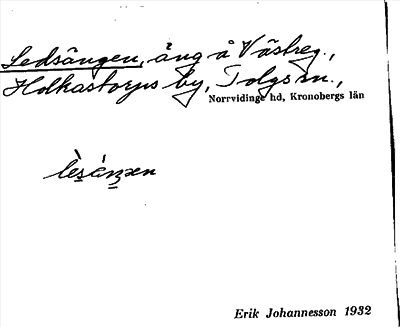 Ledsängen, äng å Västreg.,
Holkastorps by, Tolgs sn.,
Norrvidinge hd, Kronobergs län
Erik Johannesson 1932